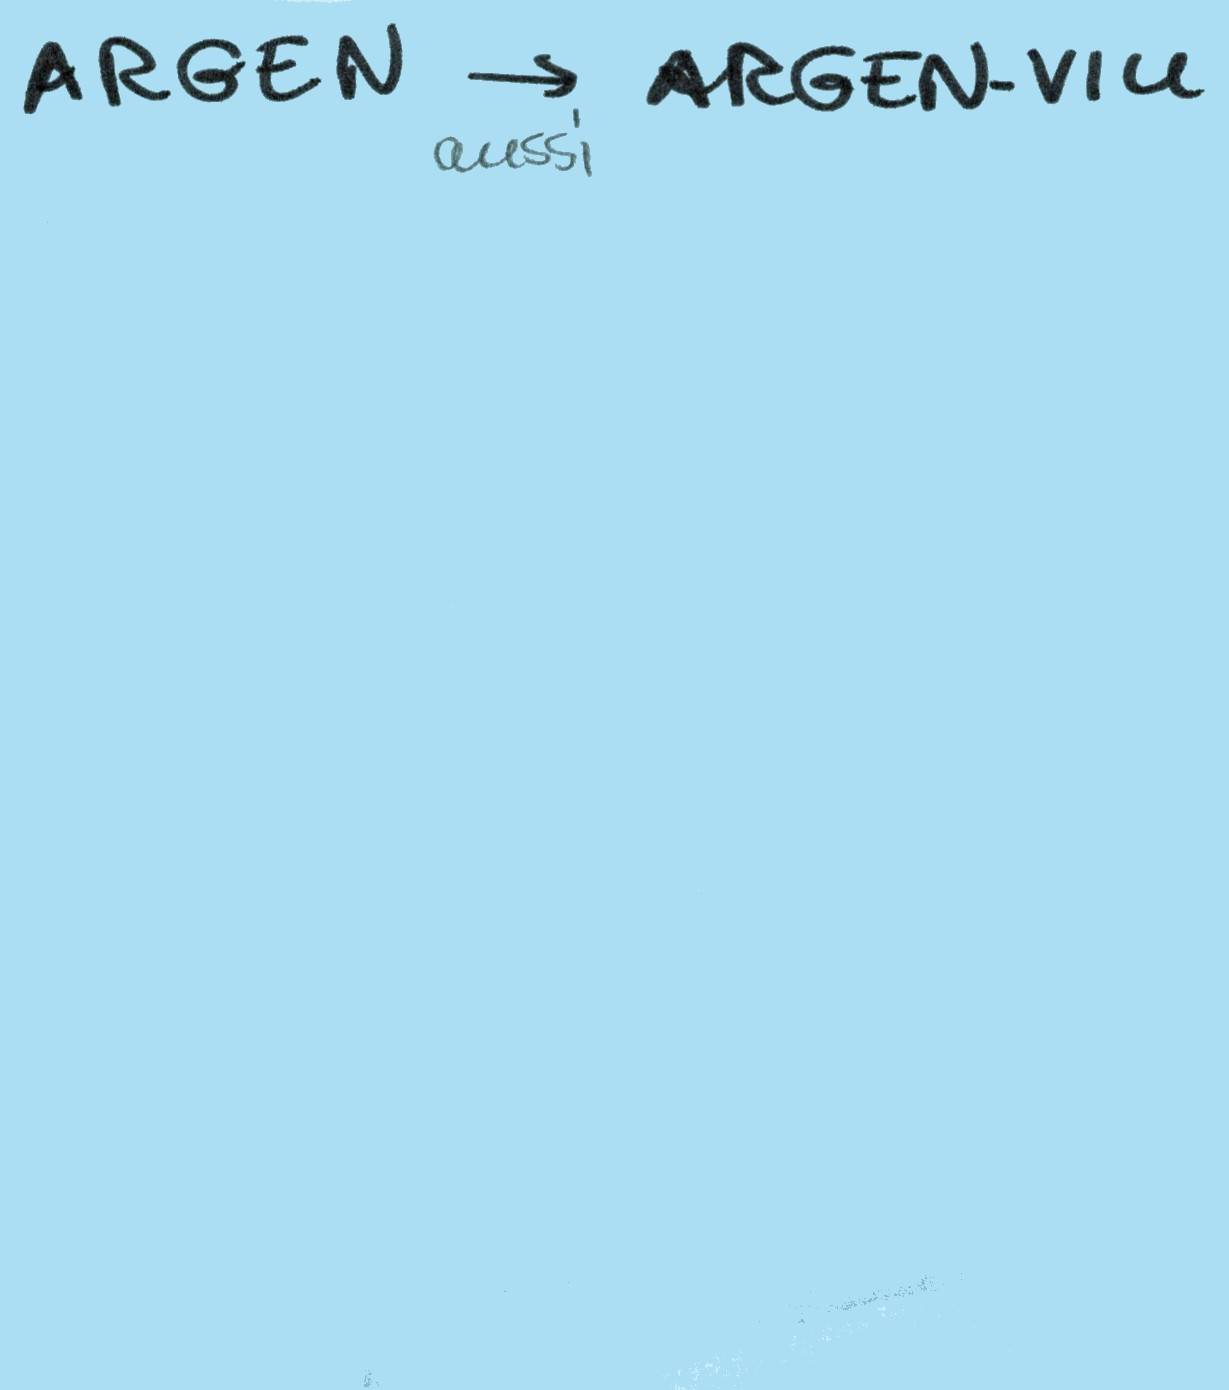 ARGEN → ARGEN-VILL
aussi